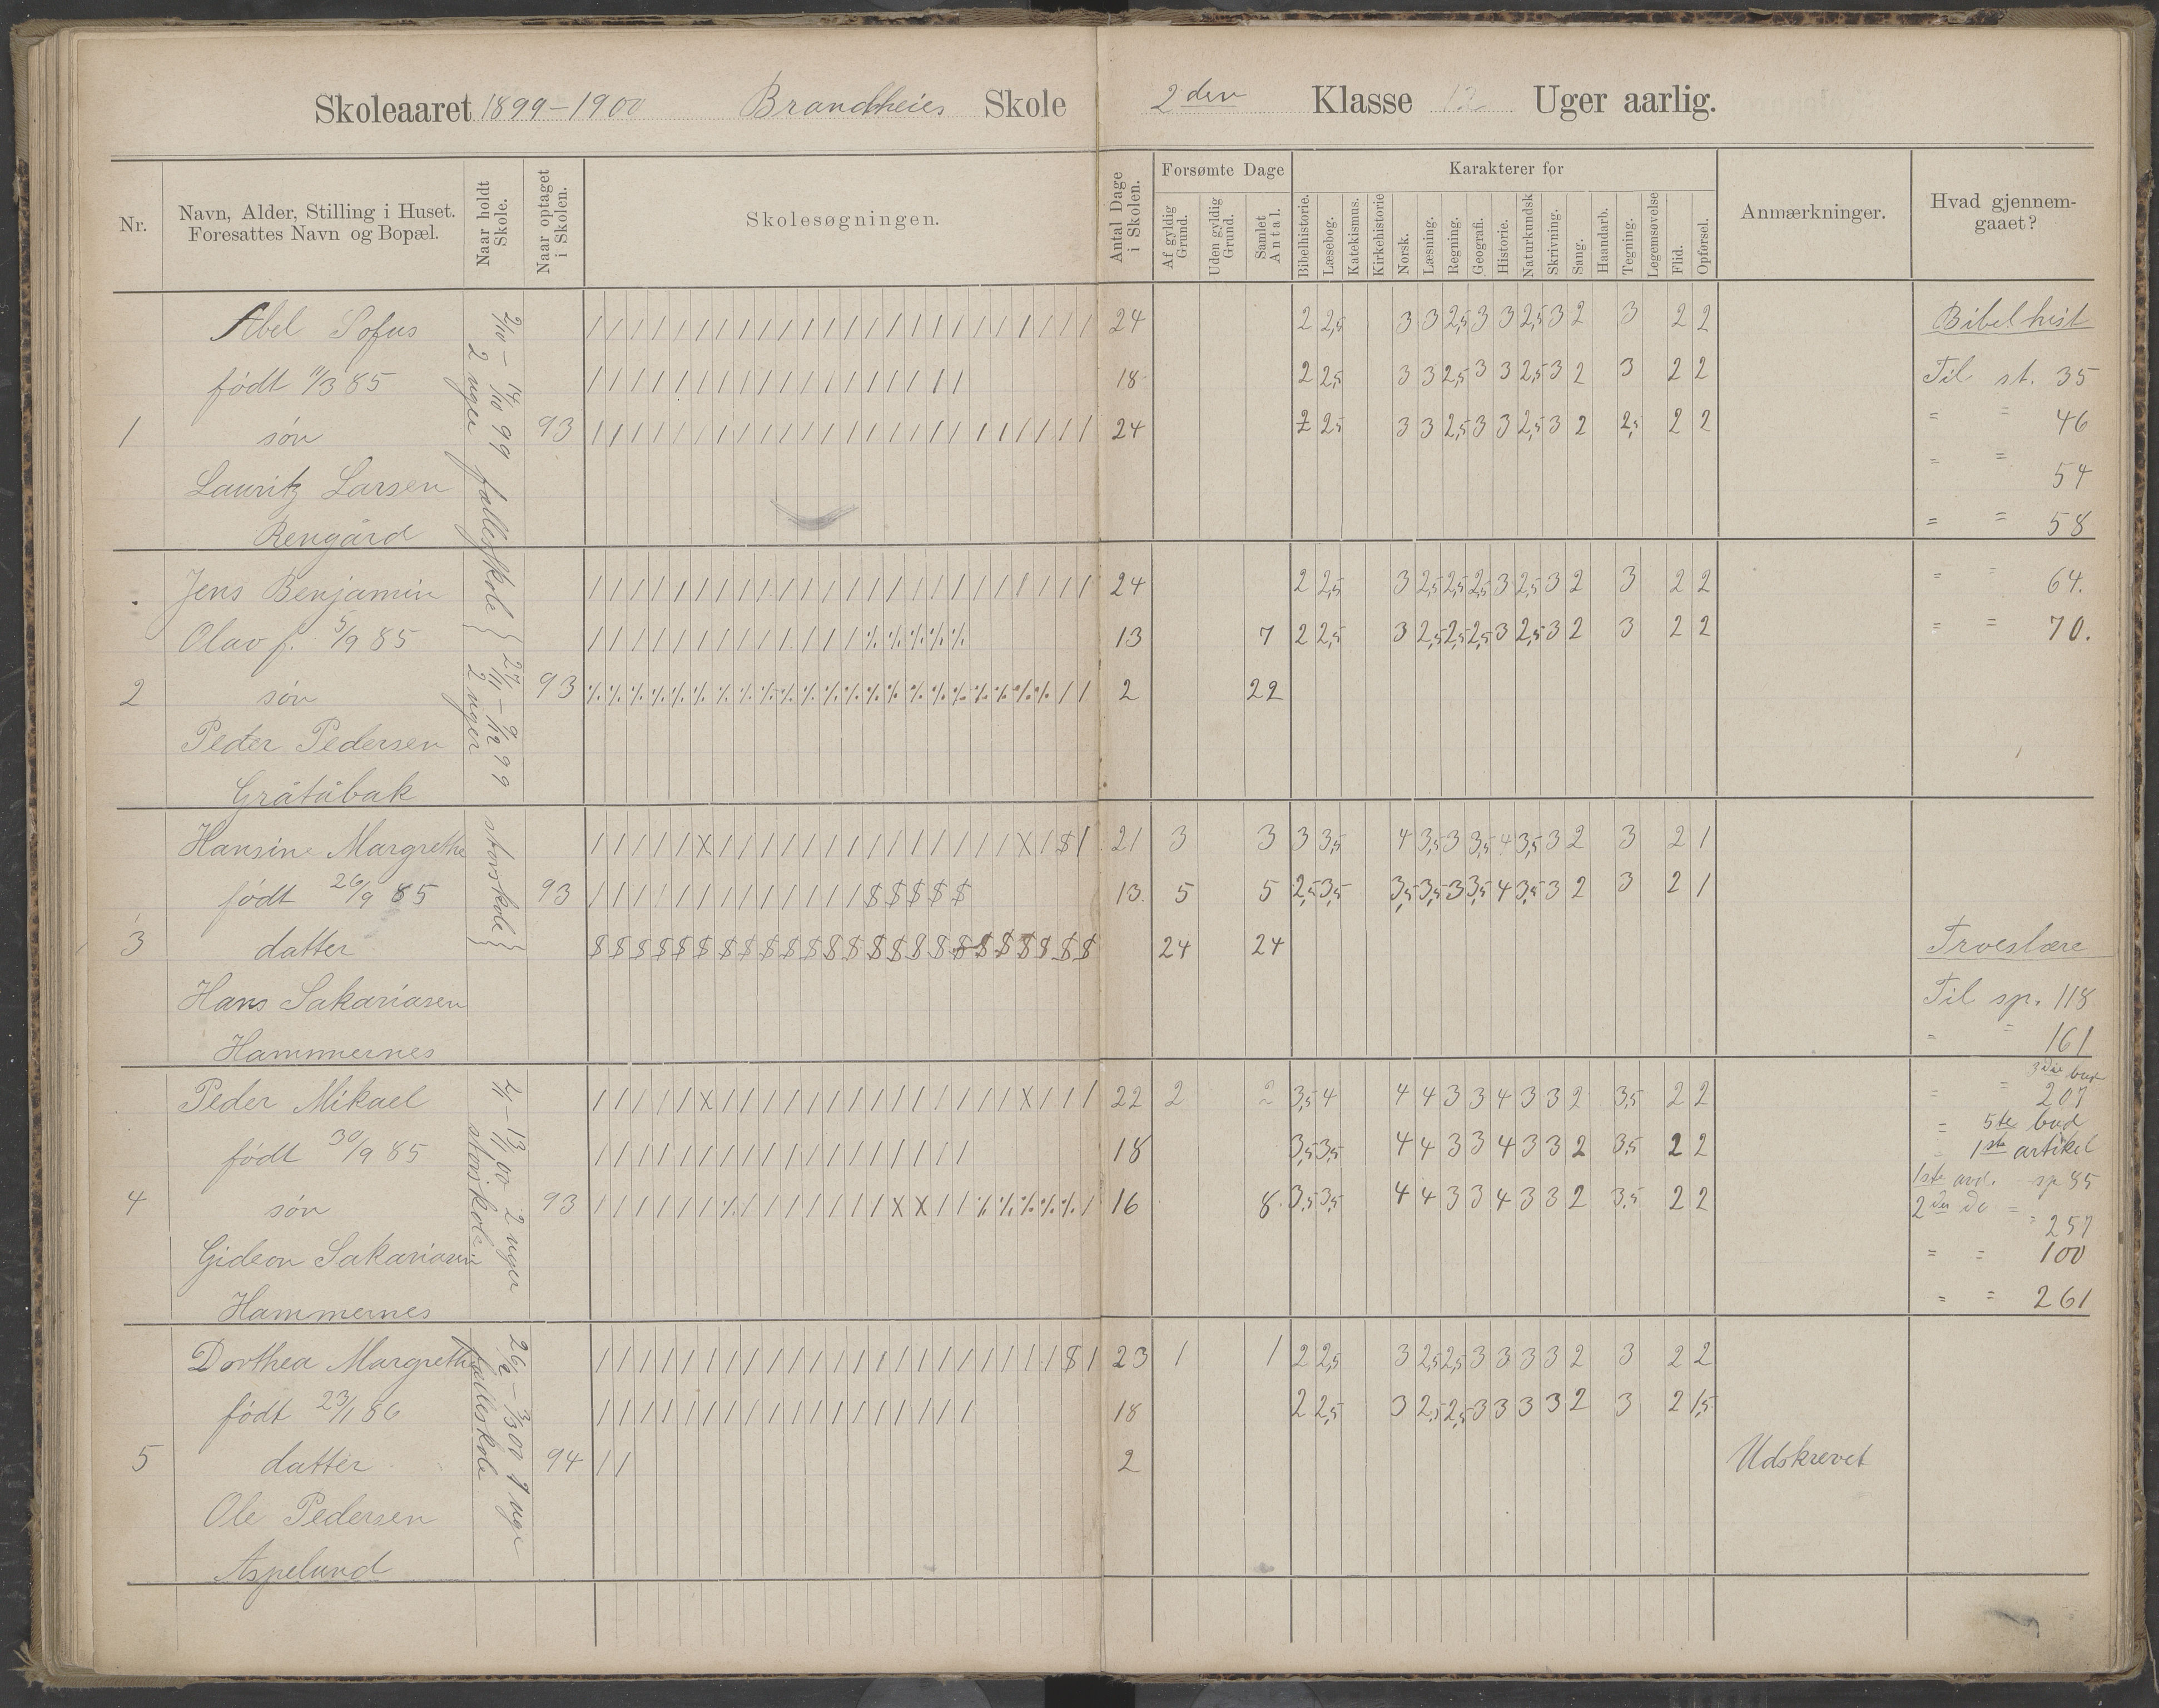 Skoleaaret 1899-1900 Brandtheies Skole 2den Klasse 12 Uger aarlig.
Nr.
Navn, Alder, Stilling i Huset.
Foresattes Navn og Bopæl.
Naar holdt Skole.
Naar optaget i Skolen.
Skolesøgningen.
Antal Dage i Skolen.
Forsømte Dage
Af gyldig Grund.
Uden gyldig Grund.
Samlet Antal.
Karakterer for
Bibelhistorie.
Læsebog.
Katekismus.
Kirkehistorie
Norsk.
Læsning.
Regning.
Geografi.
Historie.
Naturkundsk
Skrivning.
Sang.
Haandarb.
Tegning.
Legemsøvelse
Flid.
Opførsel.
Anmærkninger.
Hvad gjennem-
gaaet?
2/10 - 14/10 99 fællesskole
2 uger
27/11 - 9/12 99 storskole
2 uger
Abel Sofus / / / / / / / / / / / / / / / / / / / / / / / / 24 2 2,5 3 3 2,5 3 3 2,5 3 2 3 2 2 Bibelhist
født 11/3 85 / / / / / / / / / / / / / / / / / / 18 2 2,5 3 3 2,5 3 3 2,5 3 2 3 2 2 Til st. 35
1 søn 93 / / / / / / / / / / / / / / / / / / / / / / / / 24 2 2,5 3 3 2,5 3 3 2,5 3 2 2,5 2 2 = = 46
Lauritz Larsen = = 54
Rengård = = 58
Jens Benjamin / / / / / / / / / / / / / / / / / / / / / / / / 24 2 2,5 3 2,5 2,5 2,5 3 2,5 3 2 3 2 2 = = 64.
Olav f. 5/9 85 / / / / / / / / / / / / / % % % % % 13 7 2 2,5 3 2,5 2,5 2,5 3 2,5 3 2 3 2 2 = = 70.
2 søn 93 % % % % % % % % % % % % % % % % % % % % % % / / 2 22
Peder Pedersen
Gråtåbak
Hansine Margrethe / / / / / X / / / / / / / / / / / / / / X / $ / 21 3 3 3 3,5 4 3,5 3 3,5 4 3,5 3 2 3 2 1
født 26/9 85 93 / / / / / / / / / / / / / $ $ $ $ $ 13. 5 5 2,5 3,5 3,5 3,5 3 3,5 4 3,5 3 2 3 2 1
3 datter $ $ $ $ $ $ $ $ $ $ $ $ $ $ $ $ $ $ $ $ $ $ $ $ 24 24 Troeslære
Hans Sakariasen Til sp. 118
Hammernes = = 161
4/1 - 13/1 00 2 uger
storskole
3die bud
Peder Mikael / / / / / X / / / / / / / / / / / / / / X / / / 22 2 2 3,5 4 4 4 3 3 4 3 3 2 3,5 2 2 = = 207
= 5te bud
født 30/9 85 / / / / / / / / / / / / / / / / / / 18 3,5 3,5 4 4 3 3 4 3 3 2 3,5 2 2 = 1ste artikel
4 søn 93 / / / / / / % / / / / / / / X X / / % % % % % / 16 8. 3,5 3,5 4 4 3 3 4 3 3 2 3,5 2 2 1ste avd. sp 85
2den do = = 257
Gideon Sakariasen = = 100
Hammernes = = 261
fællesskole
Dorthea Margrethe / / / / / / / / / / / / / / / / / / / / / / $ / 23 1 1 2 2,5 3 2,5 2,5 3 3 3 3 2 3 2 2
født 23/1 86 / / / / / / / / / / / / / / / / / / 18 2 2,5 3 2,5 2,5 3 3 3 3 2 3 2 1,5
5 datter 94 / / 2 Udskrevet
Ole Pedersen
Aspelund